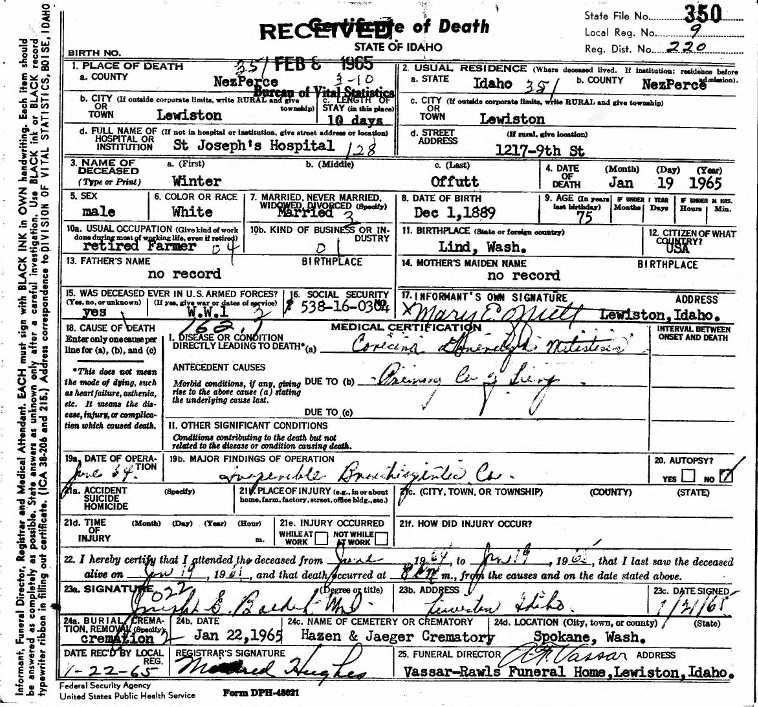 State File No. 350
Certificate of Death
RECEIVED
Local Reg. No. 9
STATE OF IDAHO
Reg. Dist. No. 220
BIRTH NO.
35/ FEB 8 1965
1. PLACE OF DEATH
a. COUNTY
NezPerce
3-10
Bureau of Vital Statistics
2. USUAL RESIDENCE (Where deceased lived. If institution: residence before admission).
a. STATE Idaho 35/ b. COUNTY NezPerce
b. CITY (If outside corporate limits, write RURAL and give township)
OR
TOWN Lewiston
c. LENGTH OF
STAY (in this place)
10 days
c. CITY (If outside corporate limits, write RURAL and give township)
OR
TOWN Lewiston
d. FULL NAME OF (If not in hospital or institution, give street address or location)
HOSPITAL OR
INSTITUTION St Joseph's Hospital 128
d. STREET (If rural, give location)
ADDRESS 1217-9th St
3. NAME OF
DECEASED
(Type or Print)
a. (First) b. (Middle) c. (Last)
Winter Offutt
4. DATE
OF
DEATH
(Month) (Day) (Year)
Jan 19 1965
5. SEX
male
6. COLOR OR RACE
White
7. MARRIED, NEVER MARRIED,
WIDOWED, DIVORCED (Specify)
Married 2
8. DATE OF BIRTH
Dec 1,1889
9. AGE (In years
last birthday)
75
IF UNDER 1 YEAR
Months Days
IF UNDER 24 HRS.
Hours Min.
10a. USUAL OCCUPATION (Give kind of work
done during most of working life, even if retired)
retired Farmer 04
10b. KIND OF BUSINESS OR IN-
DUSTRY
01
11. BIRTHPLACE (State or foreign country)
Lind, Wash.
12. CITIZEN OF WHAT
COUNTRY?
USA
13. FATHER'S NAME BIRTHPLACE
no record
14. MOTHER'S MAIDEN NAME BIRTHPLACE
no record
15. WAS DECEASED EVER IN U.S. ARMED FORCES?
(Yes, no, or unknown) (If yes, give war or dates of service)
yes W.W.1 2
16. SOCIAL SECURITY
538-16-0304
17. INFORMANT'S OWN SIGNATURE ADDRESS
X Mary E. Offutt Lewiston, Idaho.
18. CAUSE OF DEATH
Enter only one cause per
line for (a), (b), and (c)
162.1
MEDICAL CERTIFICATION
INTERVAL BETWEEN
ONSET AND DEATH
I. DISEASE OR CONDITION
DIRECTLY LEADING TO DEATH*(a)
*This does not mean
the mode of dying, such
as heart failure, asthenia,
etc. It means the dis-
ease, injury, or complica-
tion which caused death.
ANTECEDENT CAUSES
Morbid conditions, if any, giving
rise to the above cause (a) stating
the underlying cause last.
DUE TO (b) Primary Ca of Lung
DUE TO (c)
II. OTHER SIGNIFICANT CONDITIONS
Conditions contributing to the death but not
related to the disease or condition causing death.
19a. DATE OF OPERA-
TION
June 64
19b. MAJOR FINDINGS OF OPERATION
Inoperable Bronchiogenic Ca.
20. AUTOPSY?
YES NO
21a. ACCIDENT
SUICIDE
HOMICIDE
(Specify)
21b. PLACE OF INJURY (e.g., in or about
home, farm, factory, street, office bldg., etc.)
21c. (CITY, TOWN, OR TOWNSHIP) (COUNTY) (STATE)
21d. TIME
OF
INJURY
(Month) (Day) (Year) (Hour)
m.
21e. INJURY OCCURRED
WHILE AT WORK NOT WHILE AT WORK
21f. HOW DID INJURY OCCUR?
22. I hereby certify that I attended the deceased from June 1964, to Jan 19 1965, that I last saw the deceased
alive on Jan 19, 1965, and that death occurred at m., from the causes and on the date stated above.
23a. SIGNATURE (Degree or title)
MD
23b. ADDRESS
Lewiston Idaho.
23c. DATE SIGNED
1/21/65
24a. BURIAL, CREMA-
TION, REMOVAL (Specify)
cremation
24b. DATE
Jan 22,1965
24c. NAME OF CEMETERY OR CREMATORY
Hazen & Jaeger Crematory
24d. LOCATION (City, town, or county) (State)
Spokane, Wash.
DATE REC'D BY LOCAL
REG.
1-22-65
REGISTRAR'S SIGNATURE
Mildred Hughes
25. FUNERAL DIRECTOR Vassar ADDRESS
Vassar-Rawls Funeral Home, Lewiston, Idaho.
Federal Security Agency
United States Public Health Service
Form DPH-48021
Informant, Funeral Director, Registrar and Medical Attendant. EACH must sign with BLACK INK in OWN handwriting. Each item should
be answered as completely as possible. State answers as unknown only after a careful investigation. Use BLACK ink or BLACK record
typewriter ribbon in filling out certificate. (ICA 38-206 and 215.) Address correspondence to DIVISION OF VITAL STATISTICS, BOISE, IDAHO